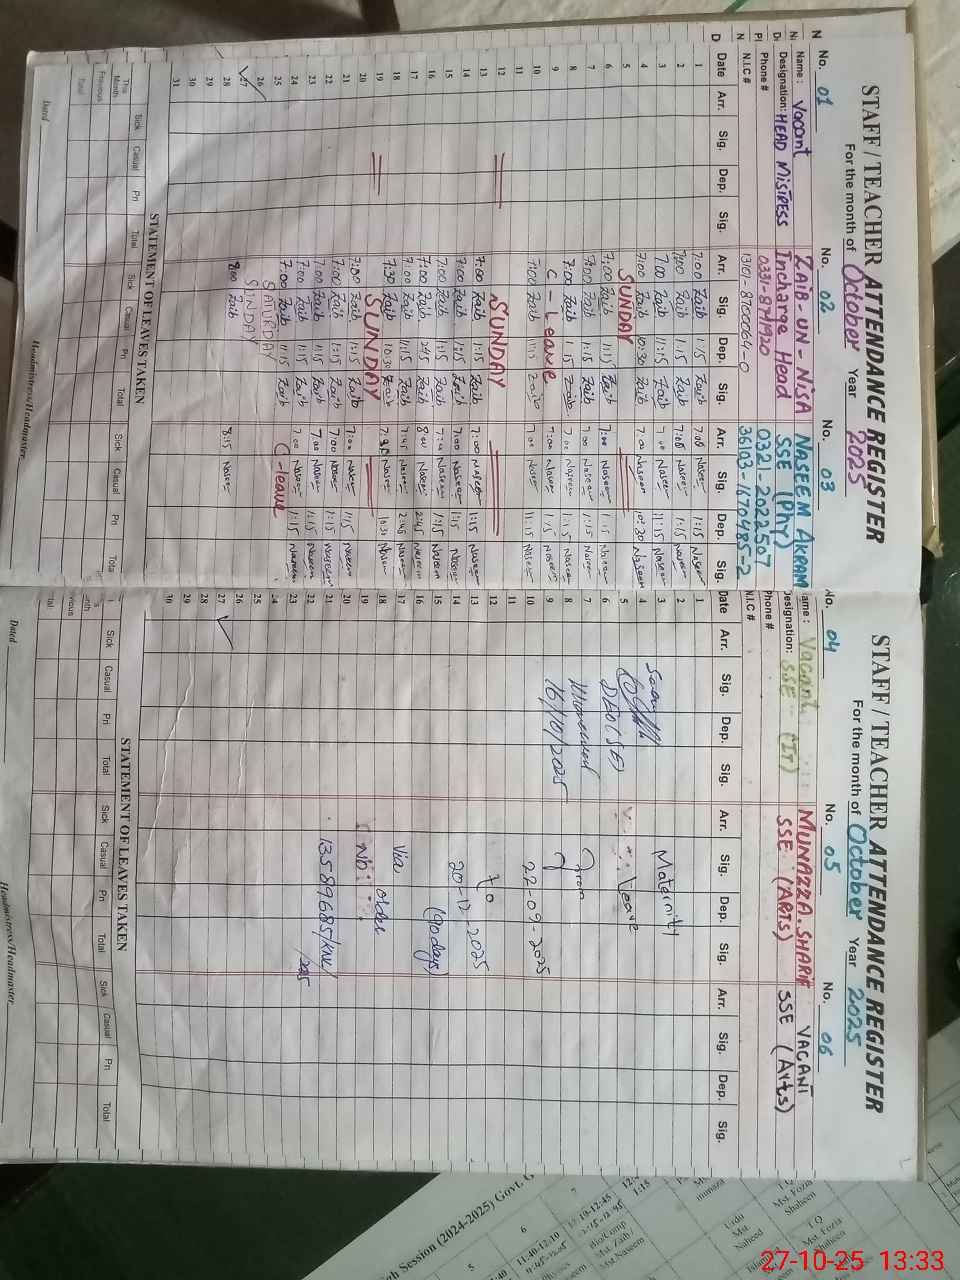 STAFF / TEACHER ATTENDANCE REGISTER
For the month of October Year 2025
No. 01 No. 02 No. 03
Name : Vacant ZAIB-UN-NISA NASEEM AKRAM
Designation: HEAD MISTRESS Incharge Head SSE (Phy)
Phone # 0331-8741920 0321-2022507
N.I.C # 13101-8700064-0 36103-1670485-2
Date Arr. Sig. Dep. Sig. Arr. Sig. Dep. Sig. Arr. Sig. Dep. Sig.
1 7:00 Zaib 1:15 Zaib 7:00 Naseem 1:15 Naseem
2 7:00 Zaib 1:15 Zaib 7:00 Naseem 1:15 Naseem
3 7:00 Zaib 11:15 Zaib 7:00 Naseem 11:15 Naseem
4 7:00 Zaib 10:30 Zaib 7:00 Naseem 10:30 Naseem
5 SUNDAY
6 7:00 Zaib 1:15 Zaib 7:00 Naseem 1:15 Naseem
7 7:00 Zaib 1:15 Zaib 7:00 Naseem 1:15 Naseem
8 7:00 Zaib 1:15 Zaib 7:00 Naseem 1:15 Naseem
9 C - Leave 7:00 Naseem 1:15 Naseem
10 7:00 Zaib 11:15 Zaib 7:00 Naseem 11:15 Naseem
11
12 SUNDAY
13 7:00 Zaib 1:15 Zaib 7:00 Naseem 1:15 Naseem
14 7:00 Zaib 1:15 Zaib 7:00 Naseem 1:15 Naseem
15 7:00 Zaib 1:15 Zaib 7:00 Naseem 1:15 Naseem
16 7:00 Zaib 2:45 Zaib 8:00 Naseem 2:45 Naseem
17 7:00 Zaib 11:15 Zaib 7:45 Naseem 2:45 Naseem
18 7:30 Zaib 10:30 Zaib 7:30 Naseem 10:30 Naseem
19 SUNDAY
20 7:30 Zaib 1:15 Zaib 7:00 Naseem 1:15 Naseem
21 7:00 Zaib 1:15 Zaib 7:00 Naseem 1:15 Naseem
22 7:00 Zaib 1:15 Zaib 7:00 Naseem 1:15 Naseem
23 7:00 Zaib 1:15 Zaib 7:00 Naseem 1:15 Naseem
24 7:00 Zaib 11:15 Zaib C-leave
25 SATURDAY
26 SUNDAY
27 8:00 Zaib 8:15 Naseem
28
29
30
31
STATEMENT OF LEAVES TAKEN
Sick Casual Pri Total Sick Casual Pri Total Sick Casual Pri Total
This Month
Previous
Total
Dated Headmistress/Headmaster
STAFF / TEACHER ATTENDANCE REGISTER
For the month of October Year 2025
No. 04 No. 05 No. 06
Name : Vacant MUNAZZA.SHARIF VACANT
Designation: SSE (IT) SSE (ARTS) SSE (Arts)
Phone #
N.I.C #
Date Arr. Sig. Dep. Sig. Arr. Sig. Dep. Sig. Arr. Sig. Dep. Sig.
1
2
3 Maternity
4
5 Leave
6 DEO (SE)
7 Khanewal From
8
9 16/10/2025
10 22-09-2025
11
12 to
13 20-12-2025
14
15 (90 days)
16
17 Via
18 order
19 No:
20
21 13589685/KNL/
22 2025
23
24
25
26
27
28
29
30
STATEMENT OF LEAVES TAKEN
Sick Casual Pri Total Sick Casual Pri Total Sick Casual Pri Total
Dated Headmistress/Headmaster
Session (2024-2025) Govt.
27-10-25 13:33